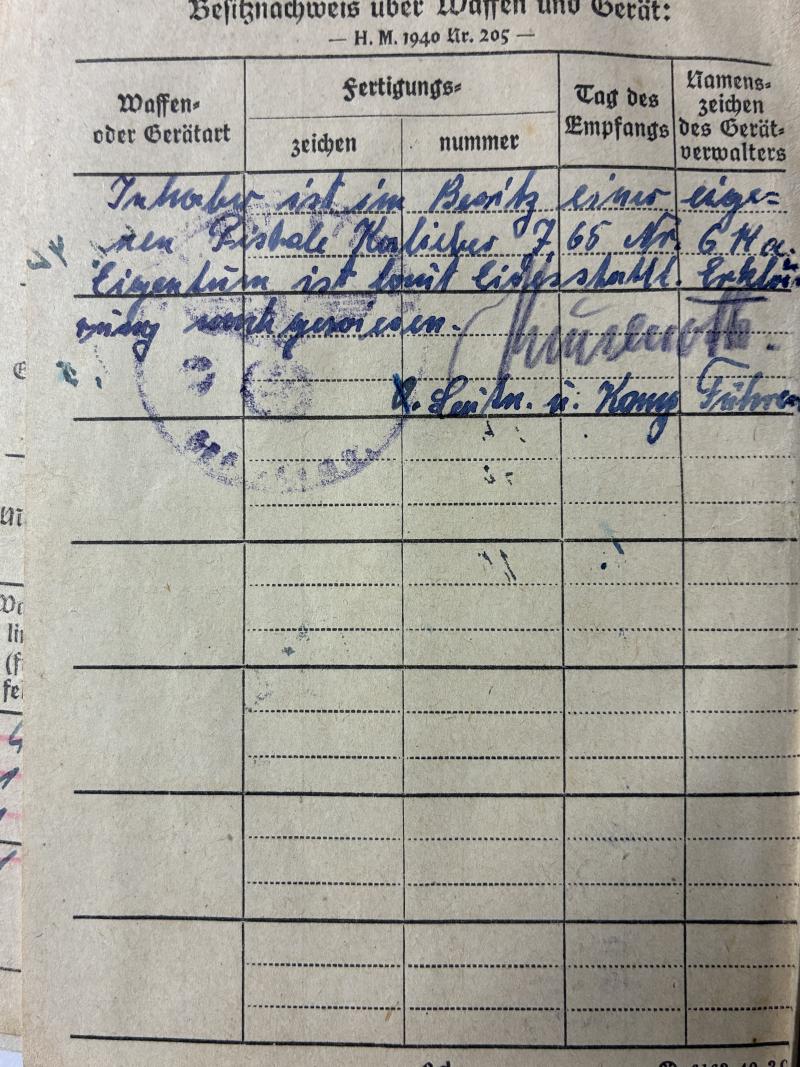 Besitznachweis über Waffen und Gerät:
— H. M. 1940 Nr. 205 —
Waffen-
oder Gerätart
Fertigungs-
zeichen
nummer
Tag des
Empfangs
Namens-
zeichen
des Gerät-
verwalters
Inhaber ist im Besitz einer eige-
nen Pistole Kaliber 7,65 Nr.
Eigentum ist laut Eidesstattl. Erklä-
rung nachgewiesen.
O. Leutn. u. Komp Führer